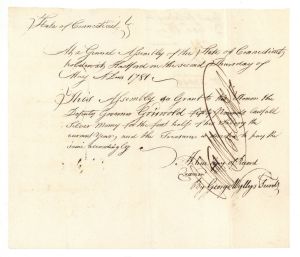 State of Connecticut
At a General Assembly of the State of Connecticut
holden at Hartford on the second Thursday of
May A.D. 1781.
This Assembly do Grant to
Deputy Griswold Fifty Pounds Lawfull
Silver Money for the first half of his Salary the
current Year; and the Treasurer is to pay the
same accordingly
A true Copy of Record
Examd
By George Wyllys Secretry